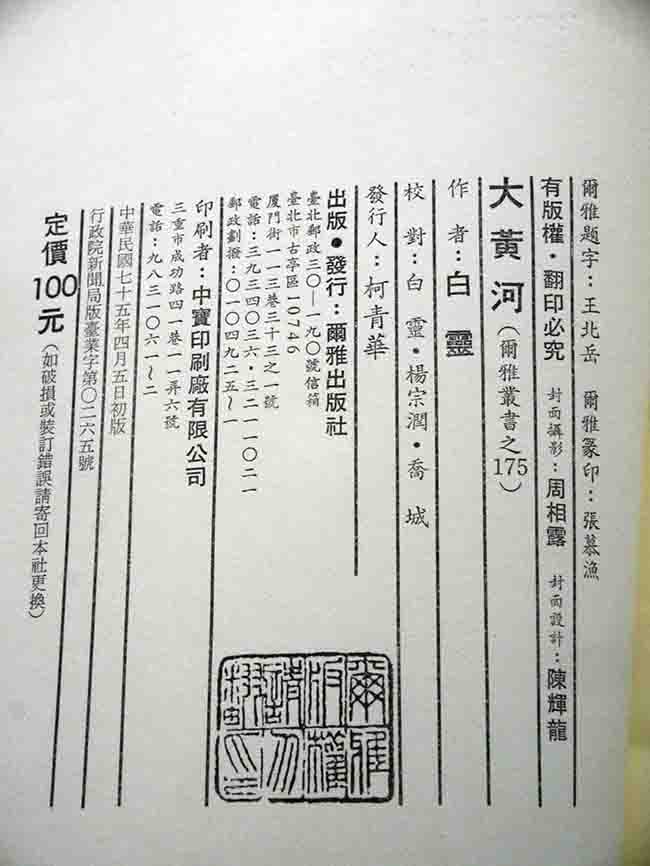 爾雅題字：王北岳　爾雅篆印：張慕漁
有版權•翻印必究　封面攝影：周相露　封面設計：陳輝龍
大黃河（爾雅叢書之175）
作者：白靈
校對：白靈•楊宗潤•喬城
發行人：柯青華
出版•發行：爾雅出版社
臺北郵政三〇—一九〇號信箱
臺北市古亭區10746
廈門街一一三巷三十三之一號
電話：三九三四〇三六•三二一一〇二一
郵政劃撥：〇一〇四九二五～一
印刷者：中寶印刷廠有限公司
三重市成功路四一巷一一弄六號
電話：九八三一〇六一～二
中華民國七十五年四月五日初版
行政院新聞局版臺業字第〇二六五號
定價100元（如破損或裝訂錯誤請寄回本社更換）
爾雅
版權